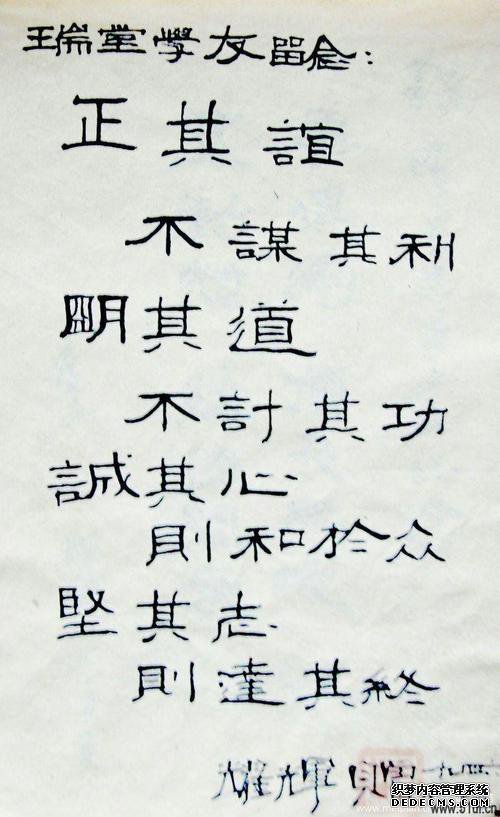 瑞堂學友留念：
正其誼
不謀其利
明其道
不計其功
誠其心
則和於众
堅其志
則達其終
耀輝
織梦内容管理系统
DEDECMS.COM